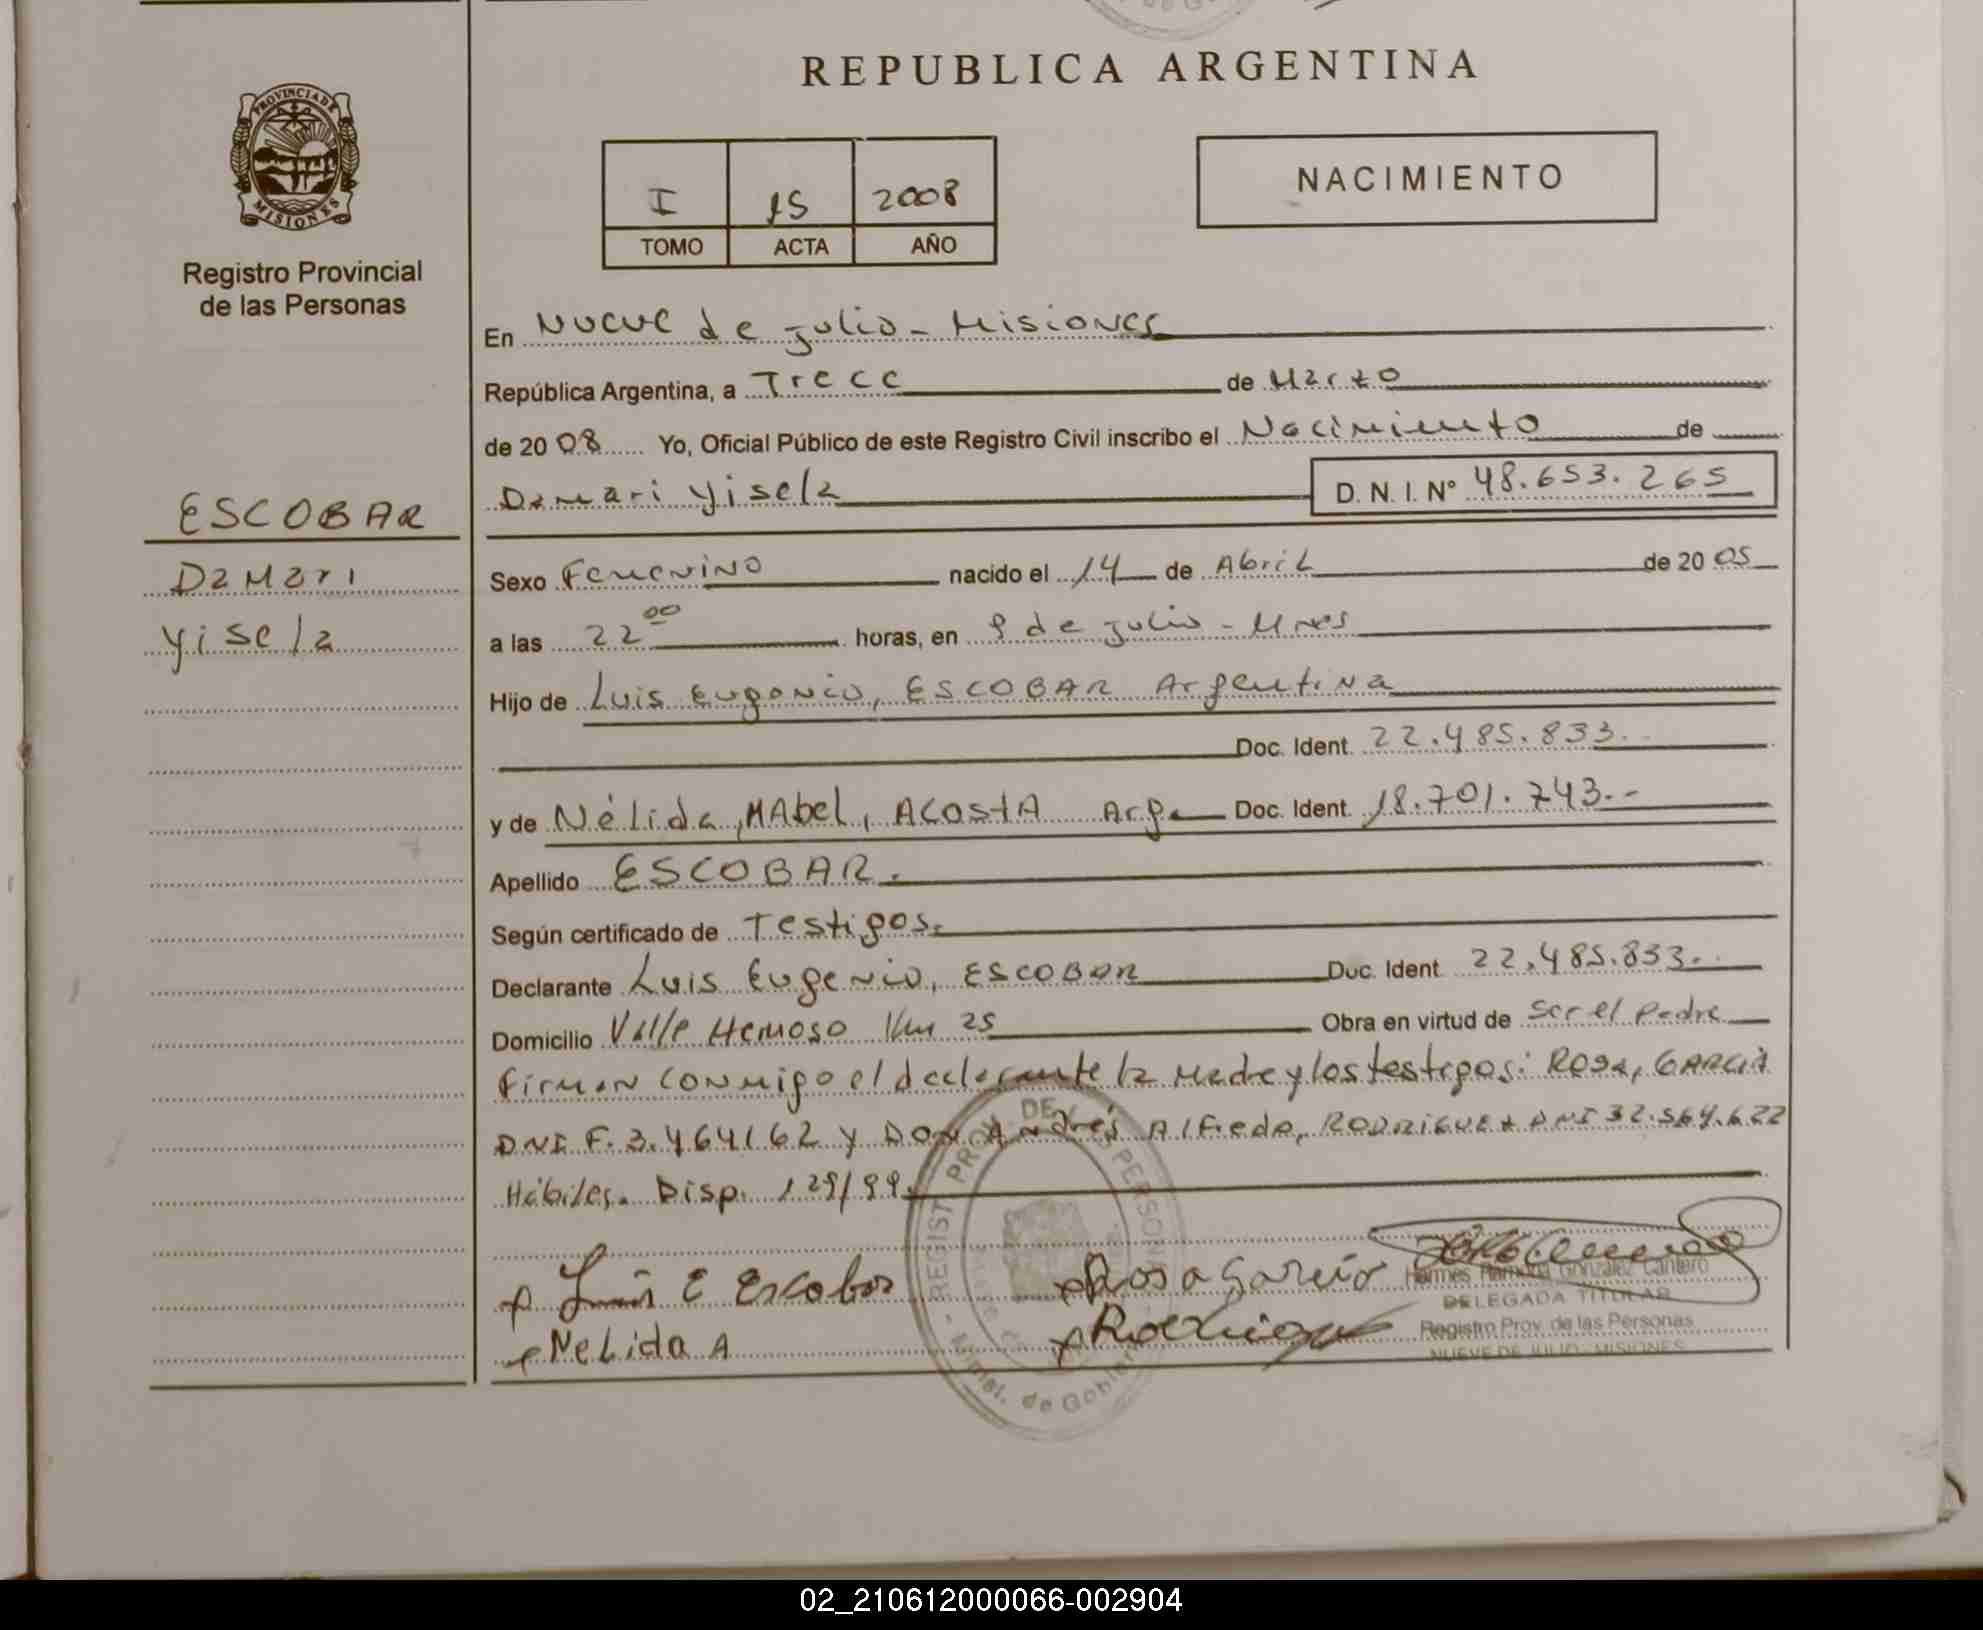 REPUBLICA ARGENTINA
PROVINCIA DE
MISIONES
Registro Provincial
de las Personas
I 15 2008
TOMO ACTA AÑO
NACIMIENTO
En Nueve de julio - Misiones
República Argentina, a Trece de Marzo
de 2008 Yo, Oficial Público de este Registro Civil inscribo el Nacimiento de
Damari Yisela D. N. I. Nº 48.653.265
ESCOBAR
Damari
Yisela
Sexo Femenino nacido el 14 de Abril de 2005
a las 22 00 horas, en 9 de julio - Mnes
Hijo de Luis Eugenio, ESCOBAR Argentina
Doc. Ident. 22.485.833.
y de Nélida, MAbel, ACostA Arg. Doc. Ident. 18.701.743.-
Apellido ESCOBAR.
Según certificado de Testigos.
Declarante Luis Eugenio, ESCOBAR Doc. Ident 22.485.833.
Domicilio Valle Hermoso Km 25 Obra en virtud de ser el padre
Firman conmigo el declarante la Madre y los testigos: ROSA, GARCIA
DNI F. 3.464162 y DON Andrés Alfredo, RODRIGUEZ DNI 32.564.622
Hábiles. Disp. 129/99.
Luis E Escobar
Rosa Garcia
Nelida A
Rodriguez
Hermes Ramona Gonzalez Cantero
DELEGADA TITULAR
Registro Prov. de las Personas
NUEVE DE JULIO - MISIONES
02_210612000066-002904